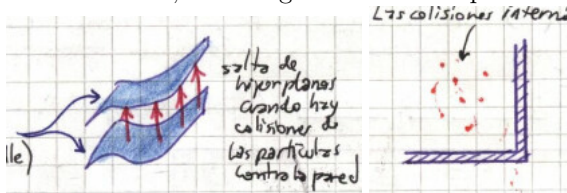 Las colisiones interna
salta de
hiperplanos
cuando hay
colisiones de
las partículas
contra la pared
lle)